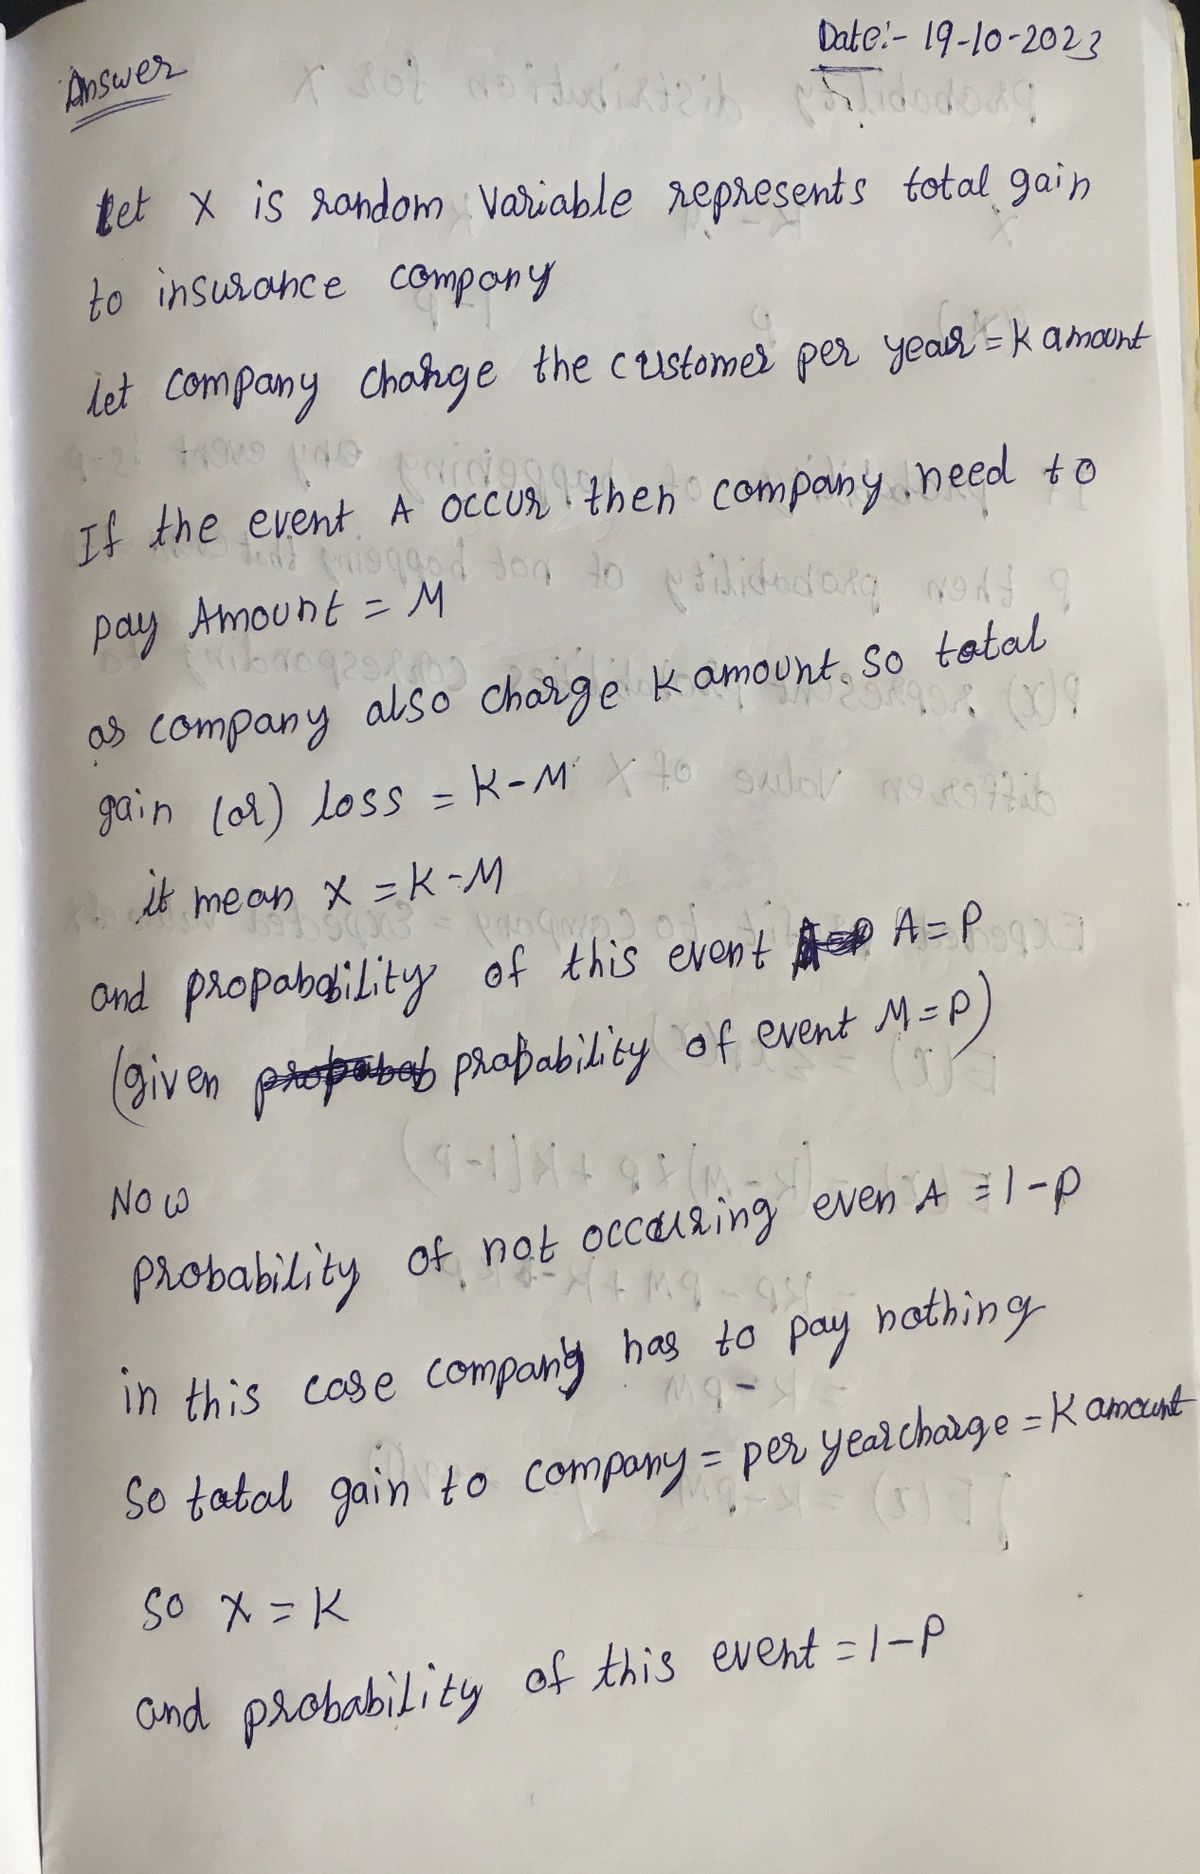 Date:- 19-10-2023
Answer
Let X is random variable represents total gain
to insurance company
let company charge the customer per year = K amount
If the event A occur then company need to
pay Amount = M
as company also charge K amount so total
gain (or) loss = K-M
it mean X = K-M
and propabability of this event A = P
(given probability of event M = P)
Now
probability of not occuring even A = 1-P
in this case company has to pay nothing
So total gain to company = per year charge = K amount
So X = K
and probability of this event = 1-P